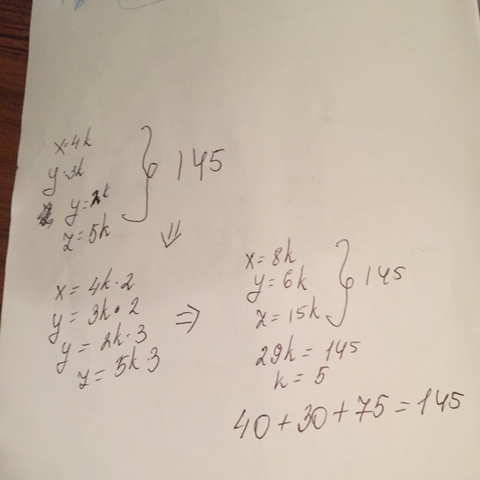 x=4k
y=3k
y=2k
z=5k
} 145
⇓
x = 4k·2
y = 3k·2
y = 2k·3
z = 5k·3
⇒
x = 8k
y = 6k
z = 15k
} 145
29k = 145
k = 5
40+30+75=145